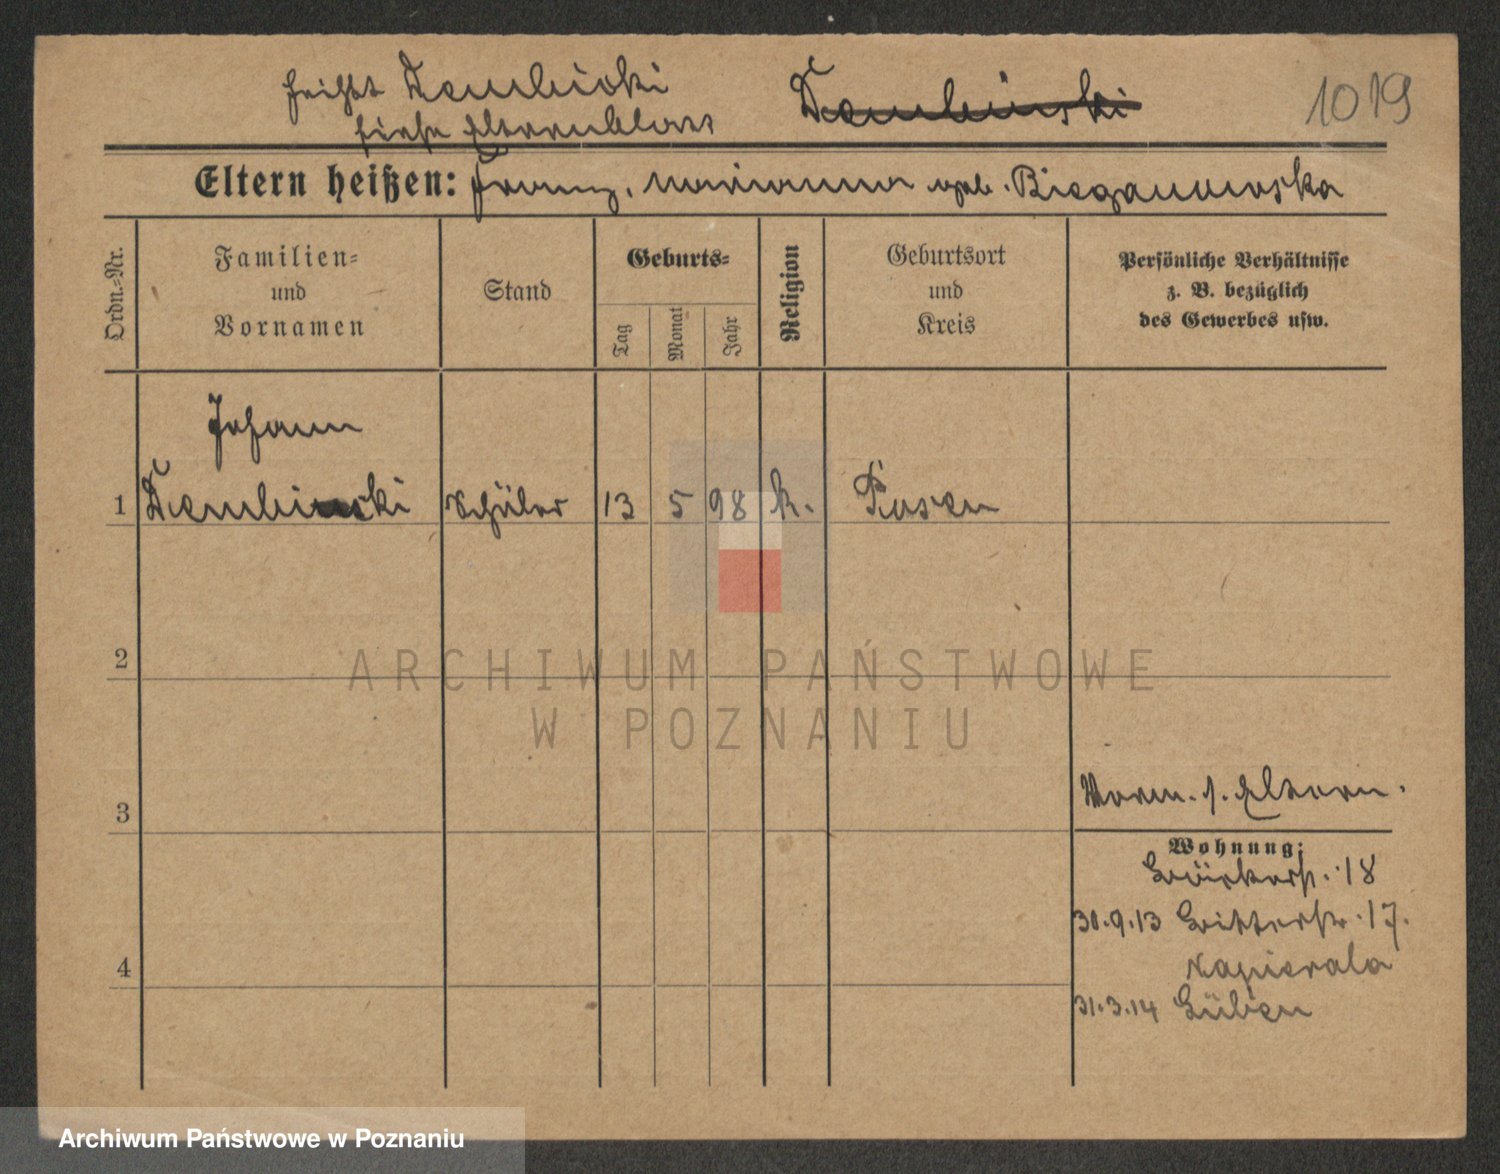 heißt Dembicki Dembinski 1019
siehe Elternblatt
Eltern heißen: Franz, Marianna geb. Bieganowska
Ordn.-Nr.
Familien-
und
Vornamen
Stand
Geburts-
Tag
Monat
Jahr
Religion
Geburtsort
und
Kreis
Persönliche Verhältnisse
z. B. bezüglich
des Gewerbes usw.
Johann
1 Dembicki Schüler 13 5 98 k. Posen
2
ARCHIWUM PAŃSTWOWE
W POZNANIU
3
Vorm. s. Eltern.
Wohnung:
18
30.9.13 Ritterstr. 17.
Napierala
4
31.3.14
Archiwum Państwowe w Poznaniu